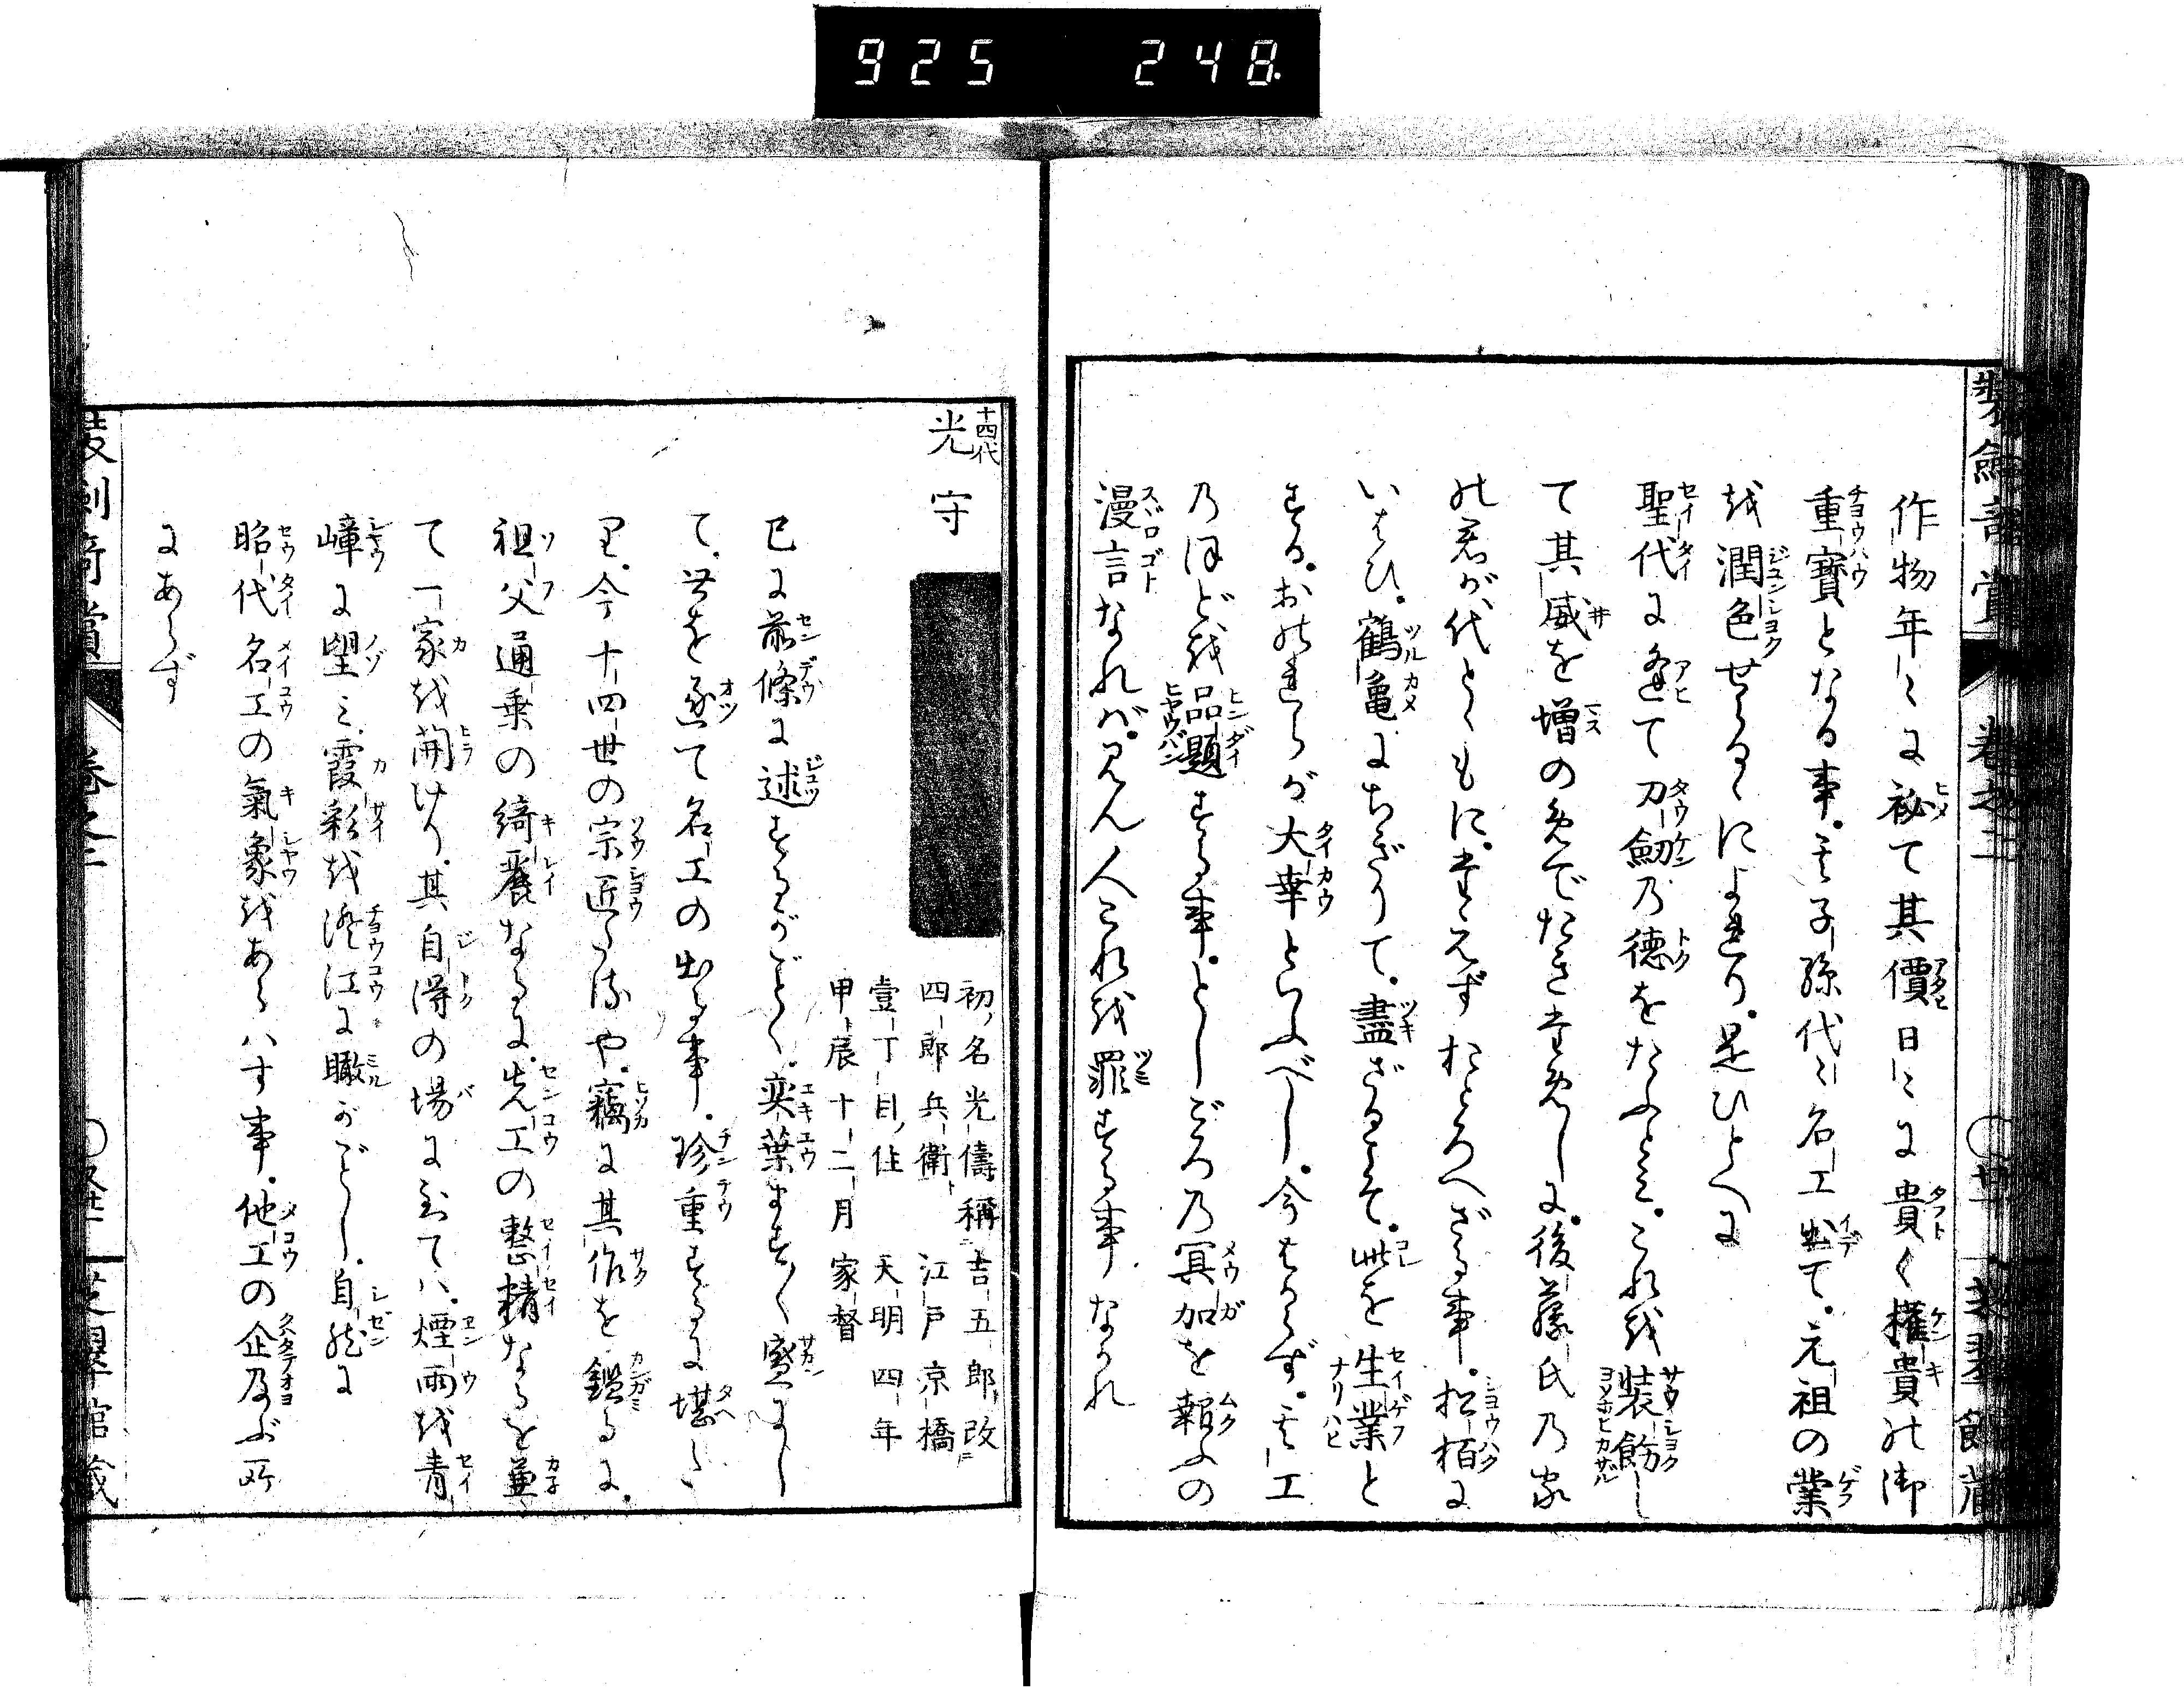 925 248
作物年〻に秘て其價日〻に貴く權貴の御
重寶となる事。其子孫代〻名工出て。元祖の業
を潤色せらるゝによれり。是ひとへに
聖代に逢て刀劔乃德をたふとみ。これを装餝し
て其威を増のめでたきためしに。後藤氏乃家
の君が代とゝもに。たえずおとろへざる事。松栢に
いはひ。鶴亀にちぎりて。盡ざるをそ。此を生業と
する。おのれらが大幸といふべし。今はからず。其工
乃ほどを品題する事。としごろ乃冥加を報ふの
漫言なれば。見ん人これを罪する事なかれ
十四代
光守
初ノ名光儔稱ニ吉五郎改ニ
四郎兵衛ト 江戸京橋
壹丁目ノ住 天明四年
甲辰十二月家督
已に前條に述するがごとく。奕葉ますく盛にし
て。世を逐て名工の出る事。珍重するに堪たり
今十四世の宗匠たるや。竊に其作を鑑るに。
祖父通乗の綺麗なるに。先工の整精なるを兼
て一家を開けり。其自得の場に至てハ。煙雨を青
嶂に望ミ。霞彩を澄江に瞰がごとし。自然に
昭代名工の氣象をあらハす事。他工の企及ぶ所
にあらず
卷之二